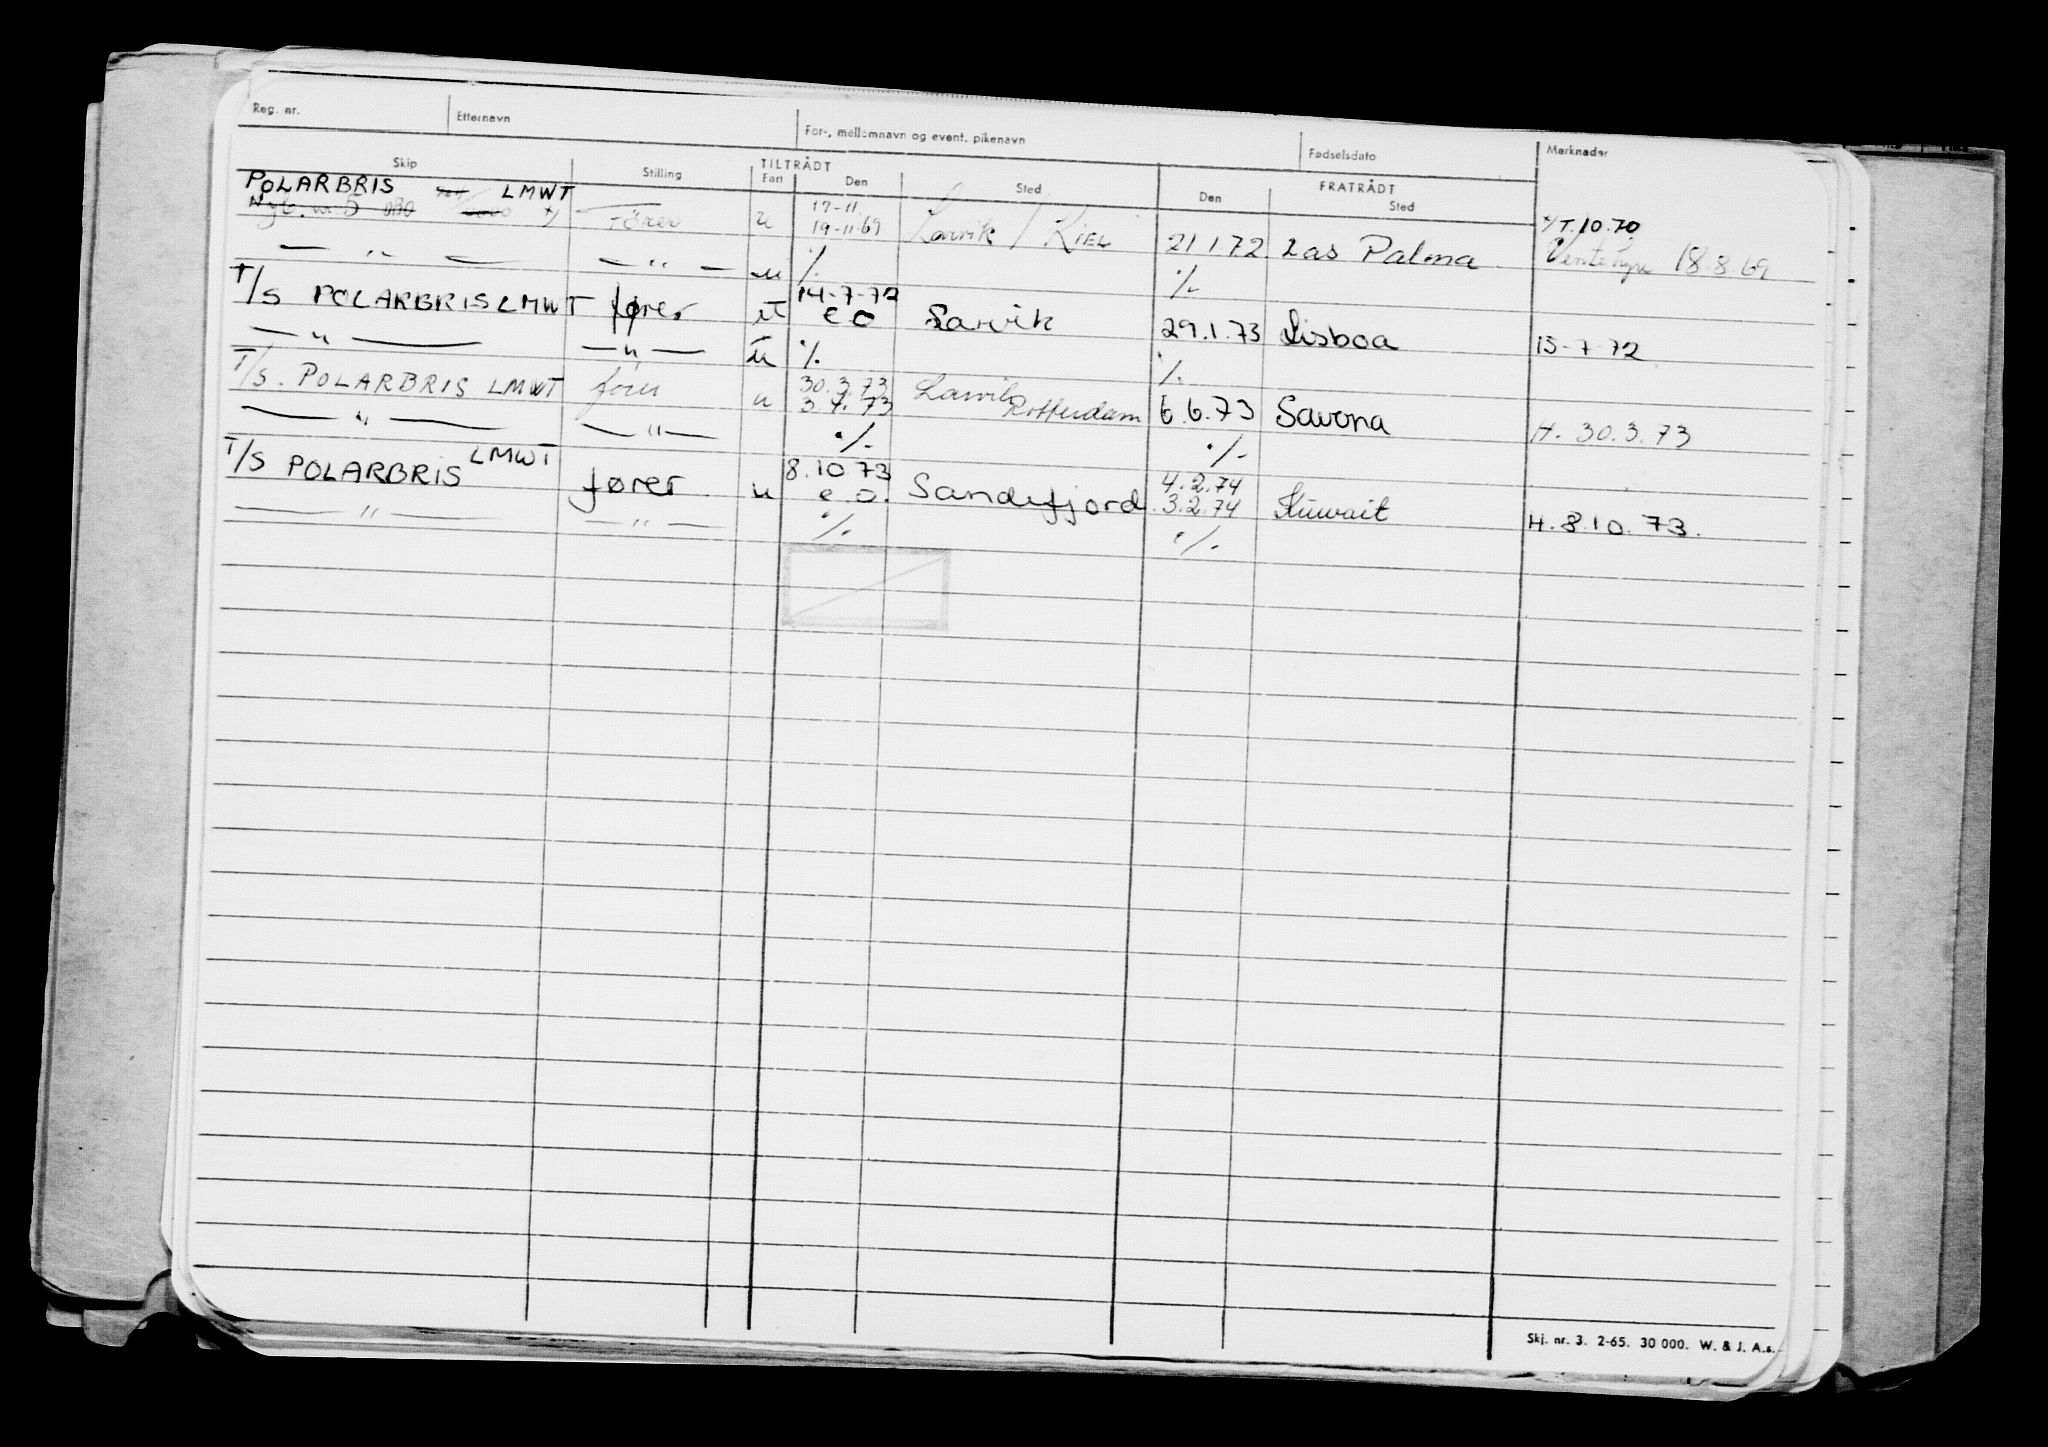 Reg. nr. Etternavn For-, mellomnavn og event. pikenavn Fødselsdato Merknader
Skip Stilling TILTRÅDT FRATRÅDT
Fart Den Sted Den Sted
POLARBRIS LMWT 17-11.
Nyb. nr. 5 OBO x) Fører u 19-11-69 Larvik / KIEL 21.1.72. Las Palma x/T.10.70
Ventehyre 18.8.69
— " — — " — u ·/. ·/.
T/S POLARBRIS LMWT fører u 14-7-72 e o Larvik 29.1.73 Lisboa 15-7-72
— " — — " — u ·/. ·/.
T/S. POLARBRIS LMWT fører u 30.3.73 Larvik
3.4.73 Rotterdam 6.6.73 Savona H. 30.3.73
— " — — " — ·/. ·/.
T/S POLARBRIS LMWT fører u 8.10.73 e.o. Sandefjord 4.2.74
3.2.74 Kuwait H. 8.10.73.
— " — — " — ·/. ·/.
Skj. nr. 3. 2-65. 30 000. W. & J. A.s.